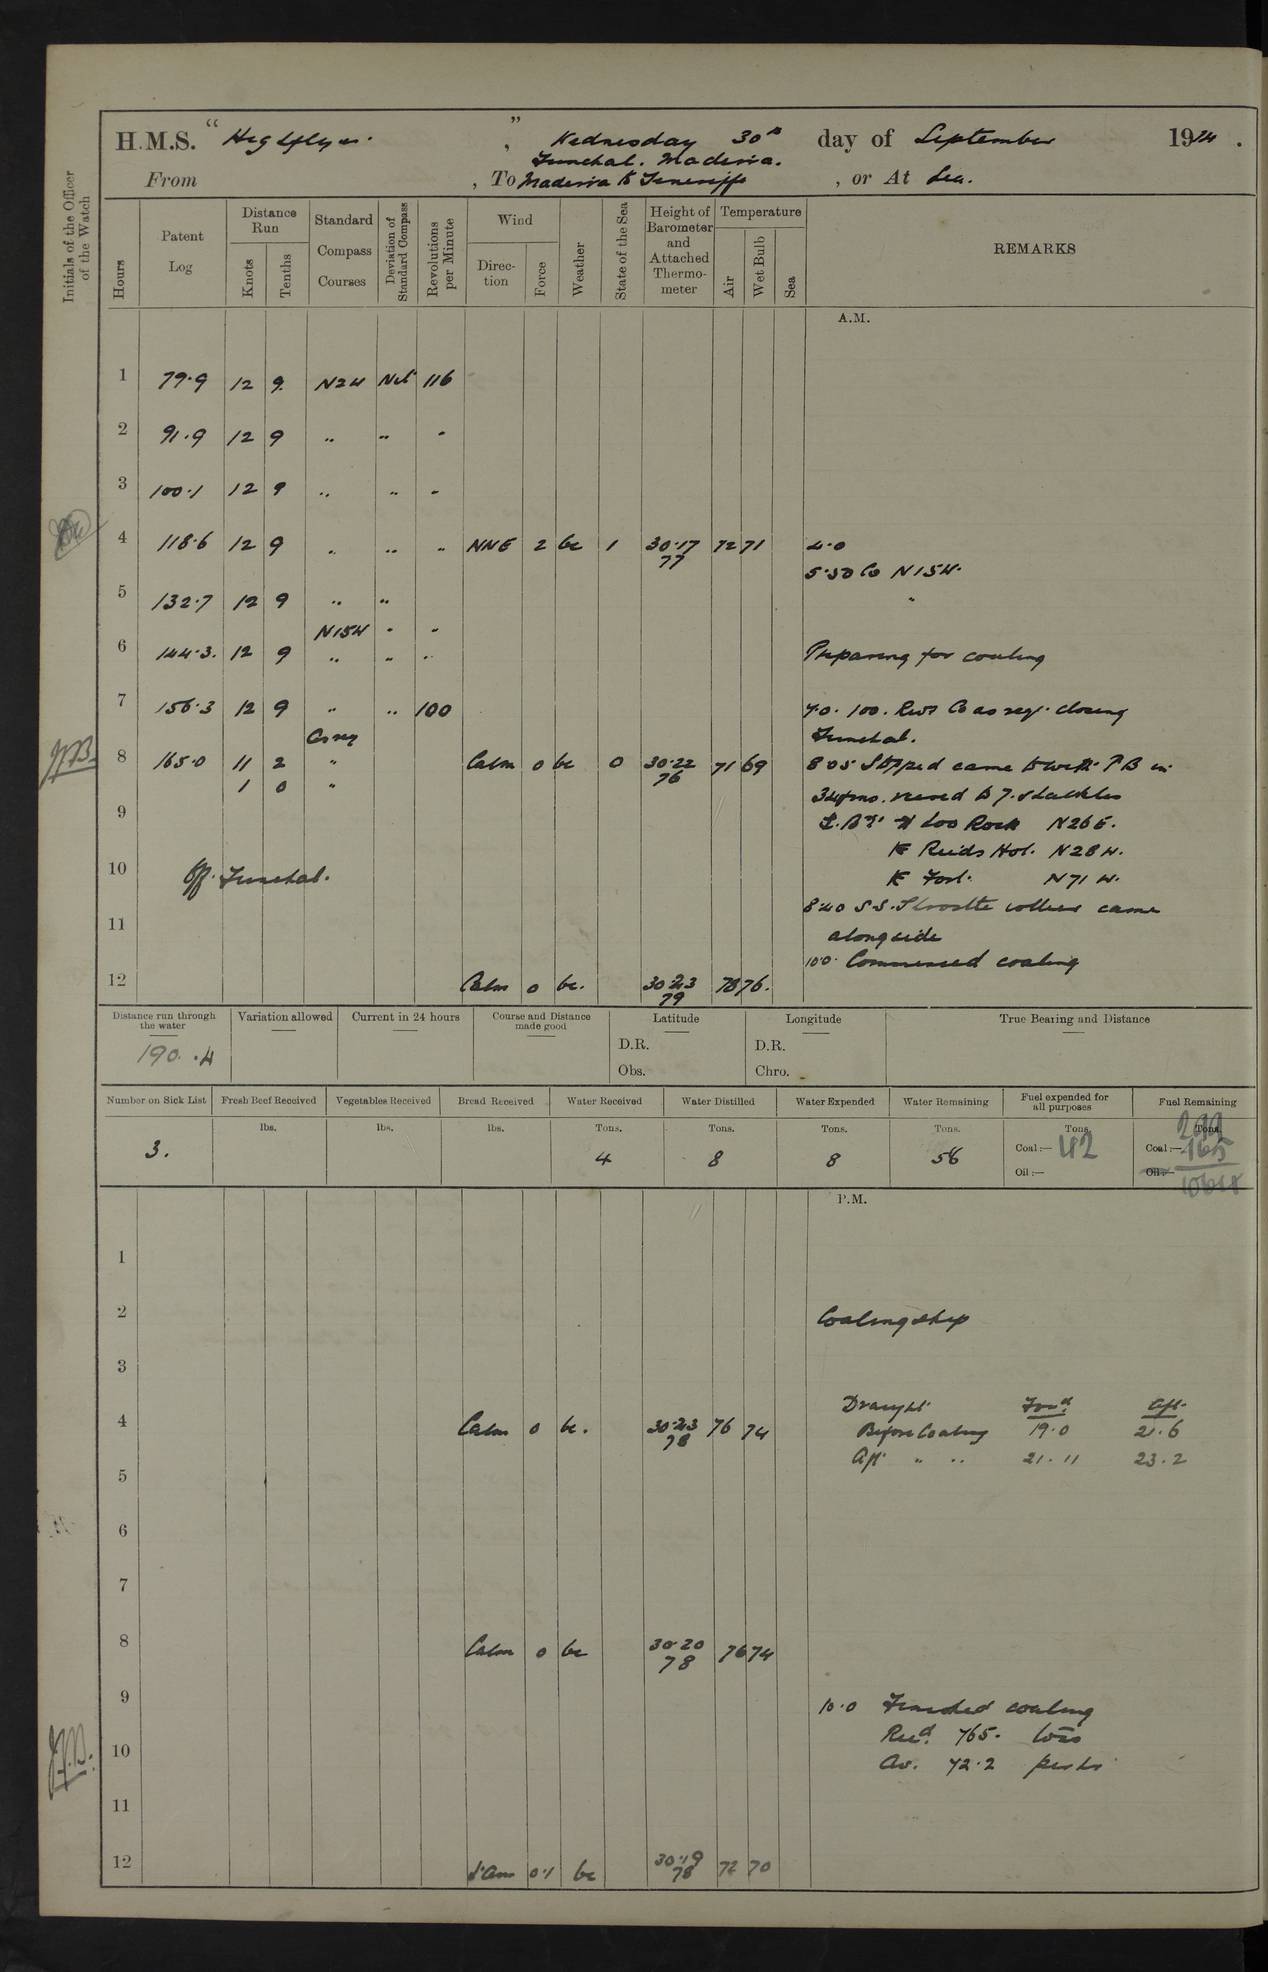 H.M.S. " Highflyer. ", Wednesday 30th day of September 1914.
Funchal. Madeira.
From , To Madeira to Teneriffe , or At Sea.
Initials of the Officer of the Watch
Hours
Patent Log
Distance Run
Knots
Tenths
Standard Compass Courses
Deviation of Standard Compass
Revolutions per Minute
Wind
Direction
Force
Weather
State of the Sea
Height of Barometer and Attached Thermometer
Temperature
Air
Wet Bulb
Sea
REMARKS
A.M.
1 79.9 12 9 N2W Nil 116
2 91.9 12 9 " " "
3 100.1 12 9 " " "
4 118.6 12 9 " " " NNE 2 bc 1 30.17 72 71 4.0
77
5.50 Co N15W.
5 132.7 12 9 " " "
N15W " "
6 144.3. 12 9 " " " Preparing for coaling
7 156.3 12 9 " " 100 7.0. 100. Revs Co as req. closing
Co req Funchal.
8 165.0 11 2 " Calm 0 bc 0 30.22 71 69 8.05 Stopped came to with P B in
76
1 0 " 34 fms. veered to 7. shackles
9
Loo Rock N26E.
Reids Hot. N28W.
10 Off. Funchal.
Fort. N71W.
8.40 S.S. collier came
11
alongside
10.0. Commenced coaling
12 Calm 0 bc. 30.23 78 76.
79
Distance run through the water
190.4
Variation allowed
Current in 24 hours
Course and Distance made good
Latitude
D.R.
Obs.
Longitude
D.R.
Chro.
True Bearing and Distance
Number on Sick List
3.
Fresh Beef Received
lbs.
Vegetables Received
lbs.
Bread Received
lbs.
Water Received
Tons.
4
Water Distilled
Tons.
8
Water Expended
Tons.
8
Water Remaining
Tons.
56
Fuel expended for all purposes
Tons.
Coal:— 42
Oil:—
Fuel Remaining
Tons.
Coal:—
Oil:—
P.M.
1
2 Coaling ship
3
Draught Ford. Aft.
4 Calm 0 bc. 30.23 76 74 Before Coaling 19.0 21.6
78
Aft " " 21.11 23.2
5
6
7
8 Calm 0 bc 30.20 76 74
78
9 10.0 Finished coaling
Recd. 765. tons
10 Av. 72.2 per hr
11
12 0.1 bc 30.19 72 70
78
J.B.